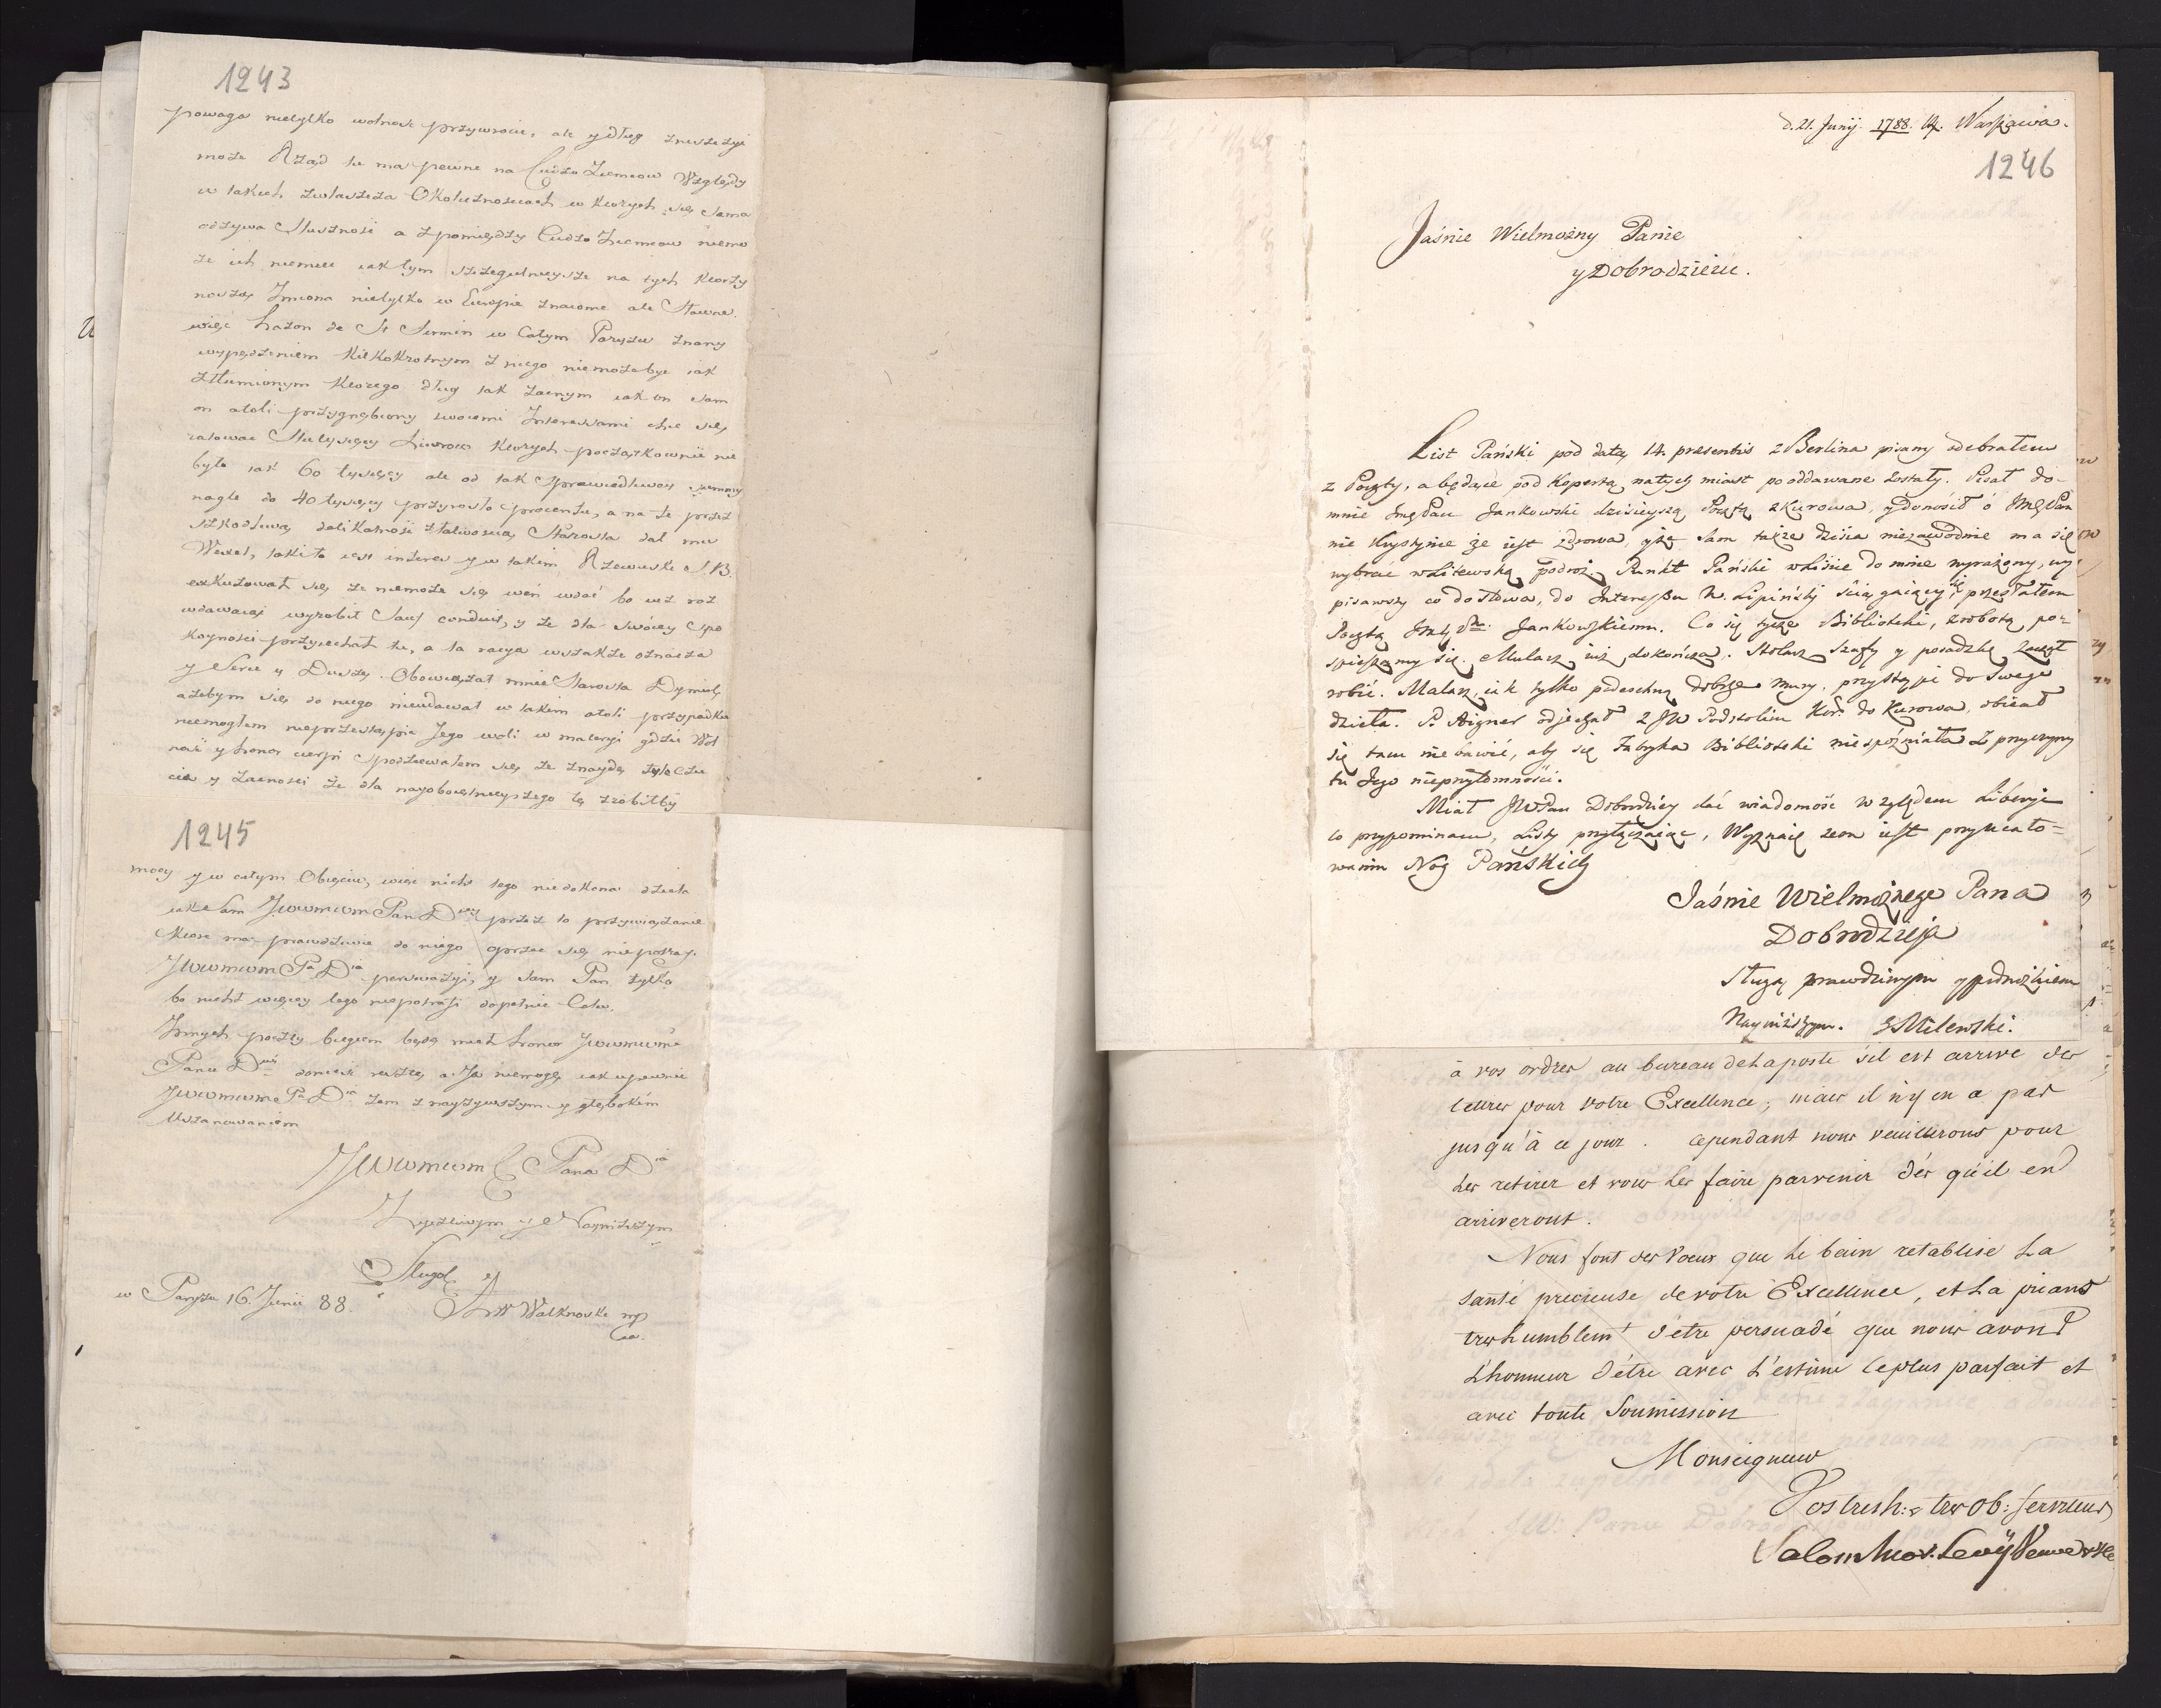 1243
powaga nietylko wolność przywrócić, ale y dług zniszczyć
może Rząd tu ma pewne na Cudzo Ziemcow Względy
w takich zwłaszcza Okolicznosciach w ktorych się sama
odzywa Słusznosć a zpomiędzy Cudzo Ziemcow
że ich niemieć iak tym szczegulnieysze na tych ktorzy
noszą Imiona nietylko w Europie znaiome ale Sławne.
więc de St in w Całym Paryżu znany
wypędzeniem kilkokrotnym z niego niemoże być iak
ztłumionym ktorego dług tak zacnym iak on sam
on atoli przygnębiony swoiemi Interessami chce się
ratować Sto tysięcy Liwrow ktorych początkownie nie
było iak 60 tysięcy ale od tak sprawiedliwey summy
nagle do 40 tysięcy przyrosło procentu, a na te przez
szkodliwą delikatność Starosta dał mu
Wexel, taki to iest interes y w takim Rzewuski S.K.
exkuzował się że niemoże się weń wdać bo iuż raz
wyrobił Sauf conduit, y że dla swoiey spo
koyności przyiechał tu, a ta racya wszakże oznacza
y Serce y Duszę. Obowiązał mnie Starosta
ażebym się do niego nieudawał w takim atoli przypadku
niemogłem nieprzestąpić Jego woli w materyi gdzie Wol
ność y honor cierpi spodziewałem się że znaydę tyle czu
cia y zacnosci że dla nayobowiętnieyszego tę zrobiłby
1245
mocy y w całym Obięciu, więc nicht tego niedokona dzieła
iak Sam JWWMWM Pan Dziey przez to przywiązanie
ktore ma prawdziwie do niego oprzec się niepotrafi.
JWWMWM Pa Dia perswazyi, y Sam Pan tylko
bo nicht więcey tego niepotrafi dopełnić Celu.
Innych poczty biegiem będę miał honor JWWMWMu
Panu Dwi donieść resztę, a Ja niemogę iak upewnić
JWWMWMe Pa Dia żem z nayżywszym y głębokim
Uszanowaniem
JWWMWM Pana Dia
Życzliwym y Nayniższym
Sługą
w Paryżu 16. Junii 88.
Walknoski mp
d. 21. Junij. 1788. Warszawa.
1246
Jaśnie Wielmożny Panie
y Dobrodzieiu.
List Pański pod datą 14. praesentis z Berlina pisany odebrałem
z Poczty, a będące pod Kopertą natych miast pooddawane zostały. Pisał do
mnie Imć Pan Jankowski dzisieyszą Pocztą z Kurowa, y donosił ó Imć Pan
nie Krystynie że iest zdrowa, y że Sam także dzisia niezawodnie ma się
wybrać w Litewską podroż. Punkt Pański w Liście do mnie wyrażony, wy
pisawszy co do słowa, do Interessu W. Lipiński ściągaiący się przesłałem
Pocztą Imć Pu Jankowskiemu. Co się tycze Biblioteki, z robotą po=
spieszamy się. Mularz iuż dokończa. Stolarz Szafy y posadzkę zaczął
robić. Malarz, iak tylko podeschną dobrze mury, przystąpi do swego
dzieła. P. Aigner odjechał z JW Podstolim Kor: do Kurowa, obiecał
się tam nie bawić, aby się Fabryka Biblioteki niespóźniała z przyczyny
tu Jego nieprzytomności.
Miał JWPan Dobrodziey dać wiadomość względem Liberyi
co przypominam, Listy przyłączaiąc, Wyznaię żem iest przy ucało=
waniu Nog Pańskich
Jaśnie Wielmożnego Pana
Dobrodzieja
Sługą prawdziwym y podnóżkiem
Nayniższym. Milewski.
à vos ordres au bureau de la poste s'il est arrivé des
lettres pour votre Excellence; mais il n'y en a pas
jusqu'à ce jour. cependant nous veillerons pour
les retirer et vous les faire parvenir dès qu'il en
arriveront.
Nous font des voeux que le bain retablise la
santé precieuse de votre Excellence, et la prians
tres humblemt d'etre persuadé que nous avons
L'honneur d'étre avec L'estime le plus parfait et
avec toute Soumission
Monseigneur
Vos tresh: & tres ob: serviteurs
Salom Mos. Levÿ Veuve